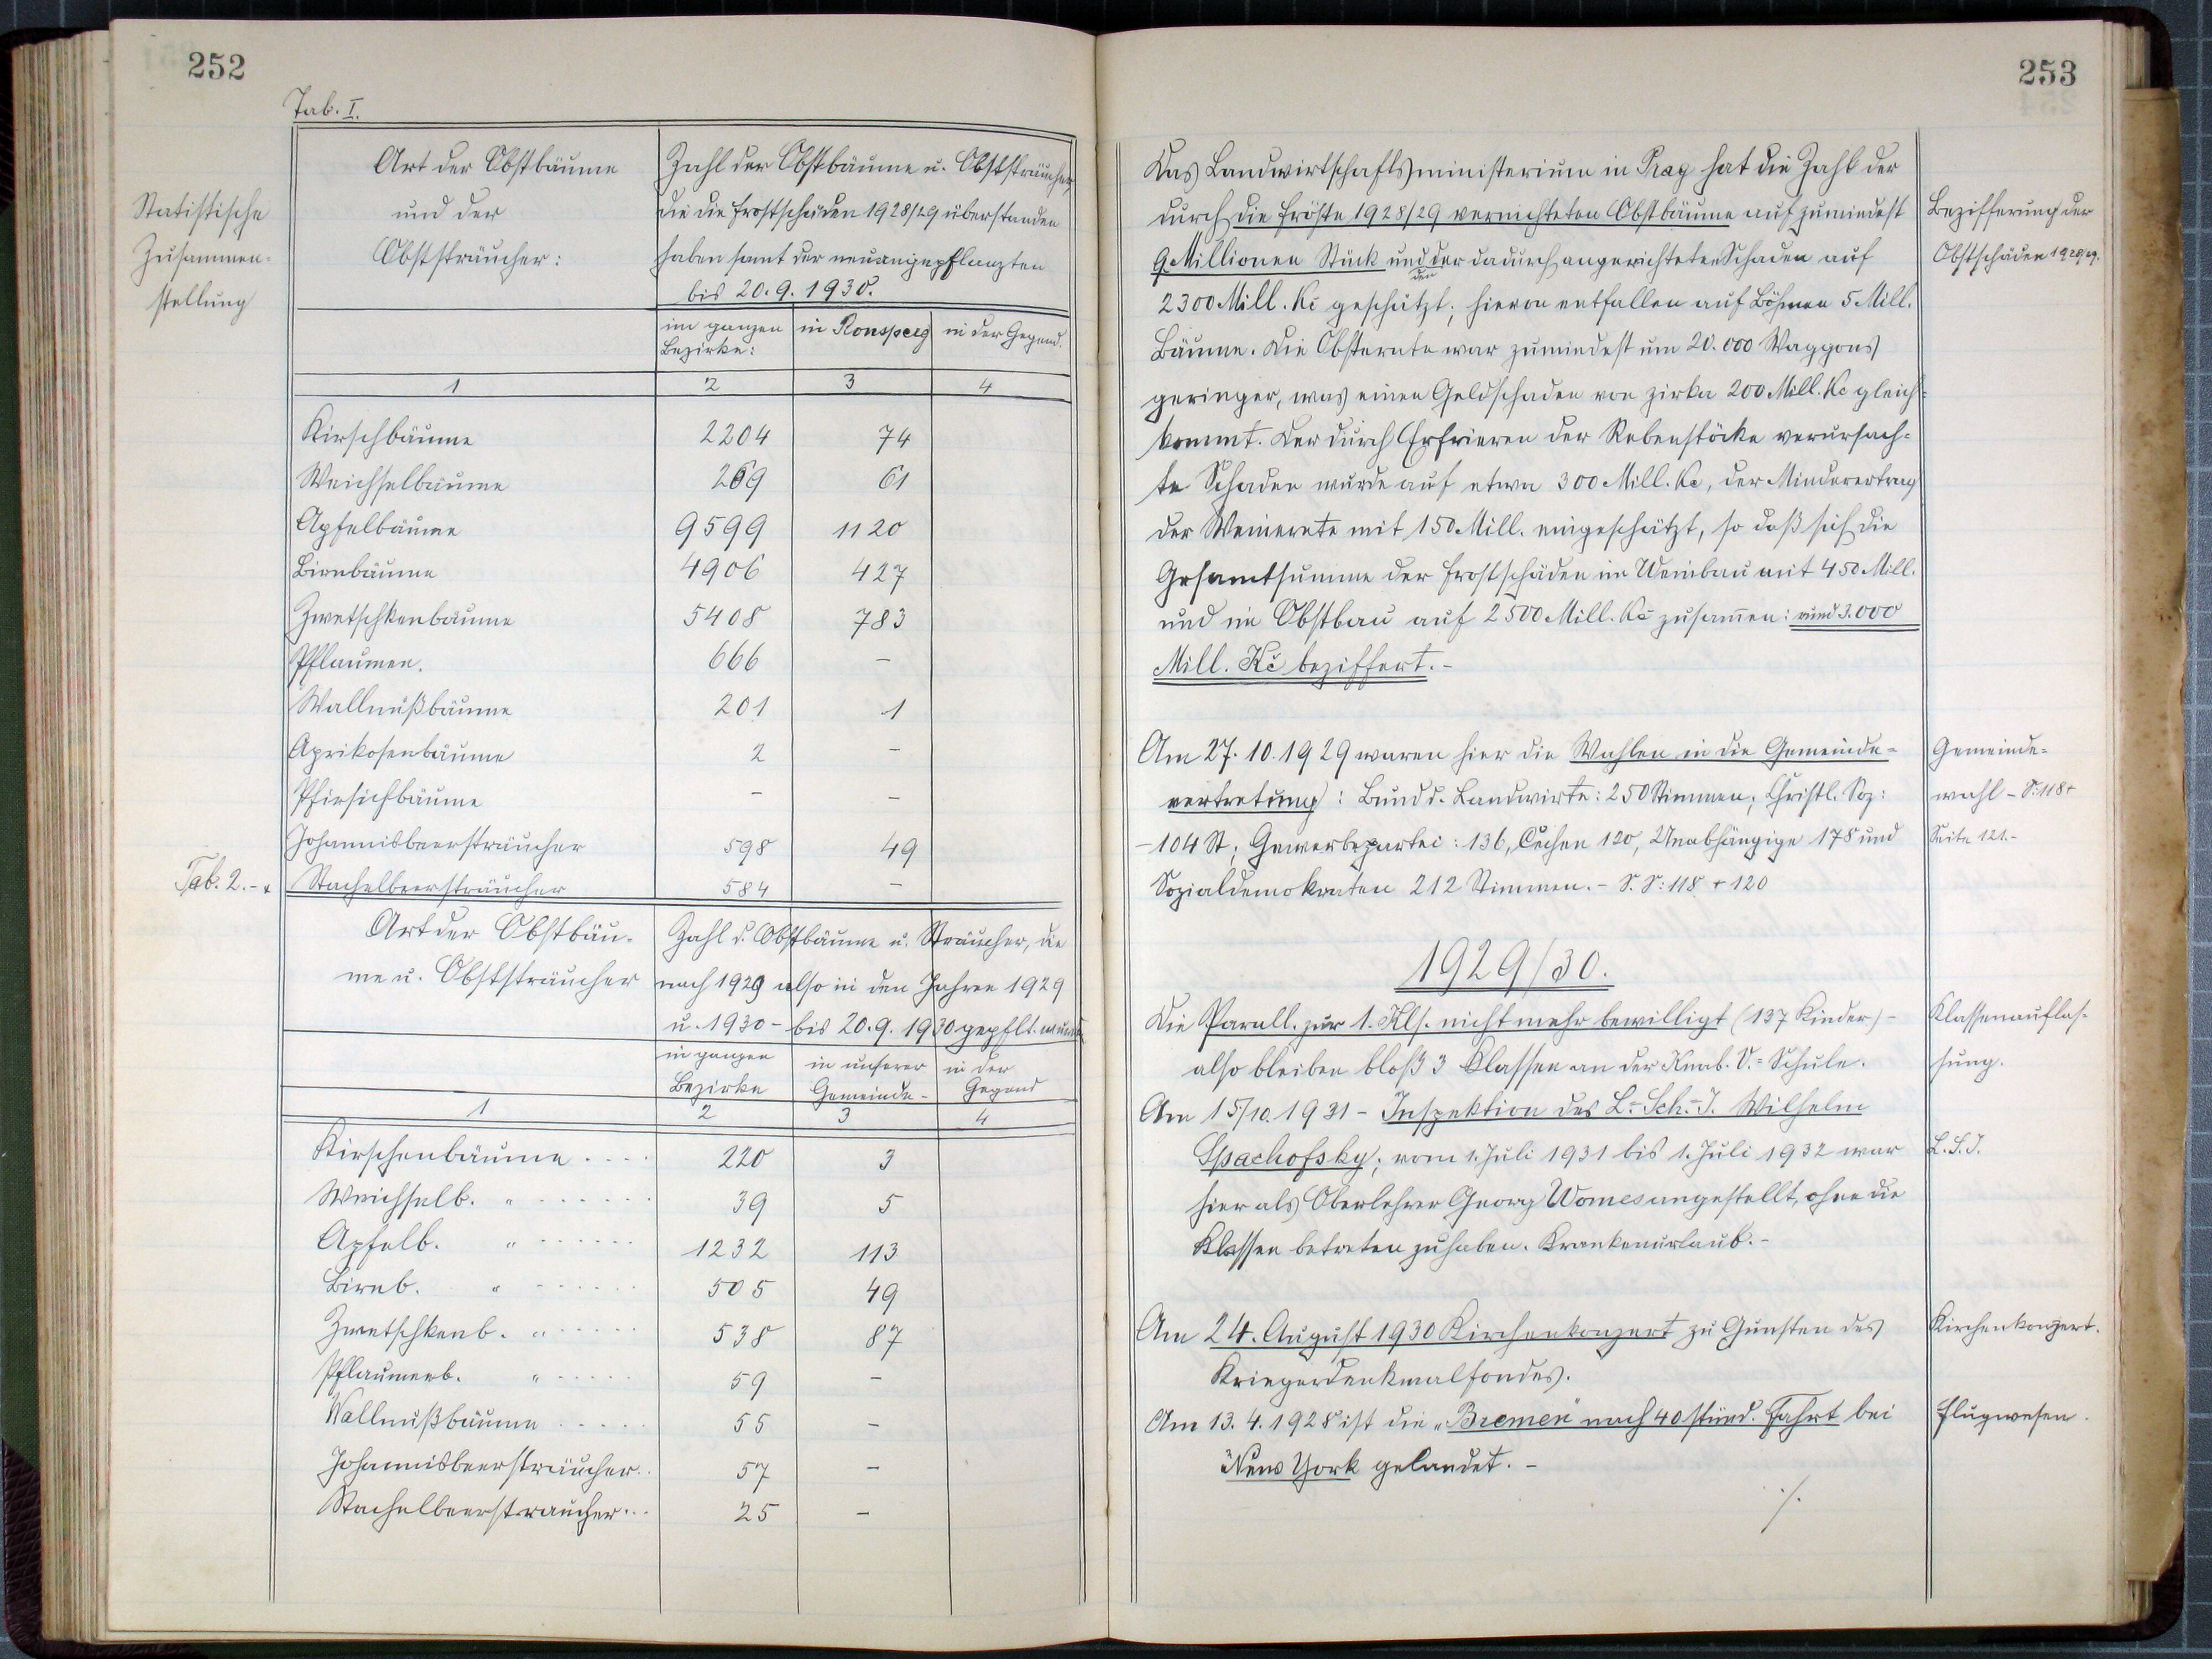 252
Tab. I.
Statistische
Zusammen-
stellung
Art der Obstbäume
und der
Obststräucher:
Zahl der Obstbäume u. Obststräucher,
die die Frostschäden 1928/29 überstanden
haben samt der neuangepflanzten
bis 20.9.1930.
im ganzen Bezirke: in Ronsperg in der Gegend.
1 2 3 4
Kirschbäume 2204 74
Weichselbäume 269 61
Apfelbäume 9599 1120
Birnbäume 4906 427
Zwetschkenbäume 5408 783
Pflaumen. 666 –
Wallnußbäume 201 1
Aprikosenbäume 2 –
Pfirsichbäume – –
Johannisbeersträucher 598 49
Stachelbeersträucher 584 –
Tab. 2.-
Art der Obstbäu-
me u. Obststräucher
Zahl d. Obstbäume u. Sträucher, die
nach 1929 also in den Jahren 1929
u. 1930 - bis 20.9.1930 gepflt.
in ganzen Bezirke in unserer Gemeinde- in der Gegend
1 2 3 4
Kirschenbäume .... 220 3
Weichselb. " ...... 39 5
Apfelb. " ...... 1232 113
Birnb. " ...... 505 49
Zwetschkenb. " ..... 538 87
Pflaumenb. " ..... 59 –
Wallnußbäume ..... 55 –
Johannisbeersträucher.. 57 –
Stachelbeersträucher... 25 –
253
Das Landwirtschaftsministerium in Prag hat die Zahl der
durch die Fröste 1928/29 vernichteten Obstbäume auf zumindest
9 Millionen Stück und der dadurch angerichteten Schaden auf
den
2300 Mill. Kč geschätzt; hievon entfallen auf Böhmen 5 Mill.
Bäume. Die Obsternte war zumindest um 20.000 Waggons
geringer, was einen Geldschaden von zirka 200 Mill. Kč gleich-
kommt. Der durch Erfrieren der Rebenstöcke verursach-
te Schaden wurde auf etwa 300 Mill. Kč, der Minderertrag
der Weinernte mit 150 Mill. eingeschätzt, so daß sich die
Gesamtsumme der Frostschäden im Weinbau mit 450 Mill.
und im Obstbau auf 2500 Mill. Kč zusammen: rund 3.000
Mill. Kč beziffert.-
Bezifferung der
Obstschäden 1928/29.
Am 27.10.1929 waren hier die Wahlen in die Gemeinde-
vertretung: Bund d. Landwirte: 250 Stimmen, Christl. Soz:
-104 St; Gewerbepartei: 136, Čechen 120, Unabhängige 178 und
Sozialdemokraten 212 Stimmen.- S. S: 118 + 120
Gemeinde-
wahl - S: 118 +
Seite 121.-
1929/30.
Die Parall. zur 1. Kls. nicht mehr bewilligt (137 Kinder)-
also bleiben bloß 3 Klassen an der Knab. V.-Schule.
Klassenauflas-
sung.
Am 15/10.1931 - Inspektion des L.-Sch.-I. Wilhelm
Spachofsky; vom 1. Juli 1931 bis 1. Juli 1932 war
hier als Oberlehrer Georg Womes angestellt, ohne die
Klassen betreten zu haben. Krankenurlaub.-
L. S. I.
Am 24. August 1930 Kirchenkonzert zu Gunsten des
Kriegerdenkmalfondes.
Kirchenkonzert.
Am 13.4.1928 ist die „Bremen" nach 40 stünd. Fahrt bei
New York gelandet.-
Flugwesen.
./.